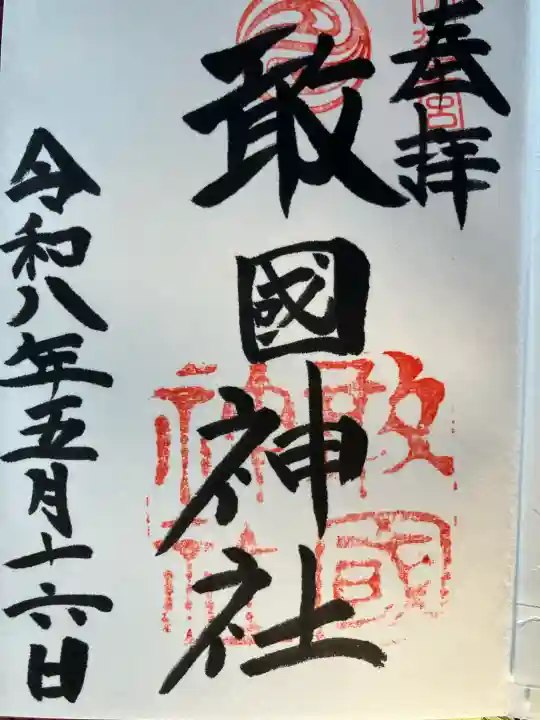 奉拝
敢國神社
敢國
神社
令和八年五月十六日